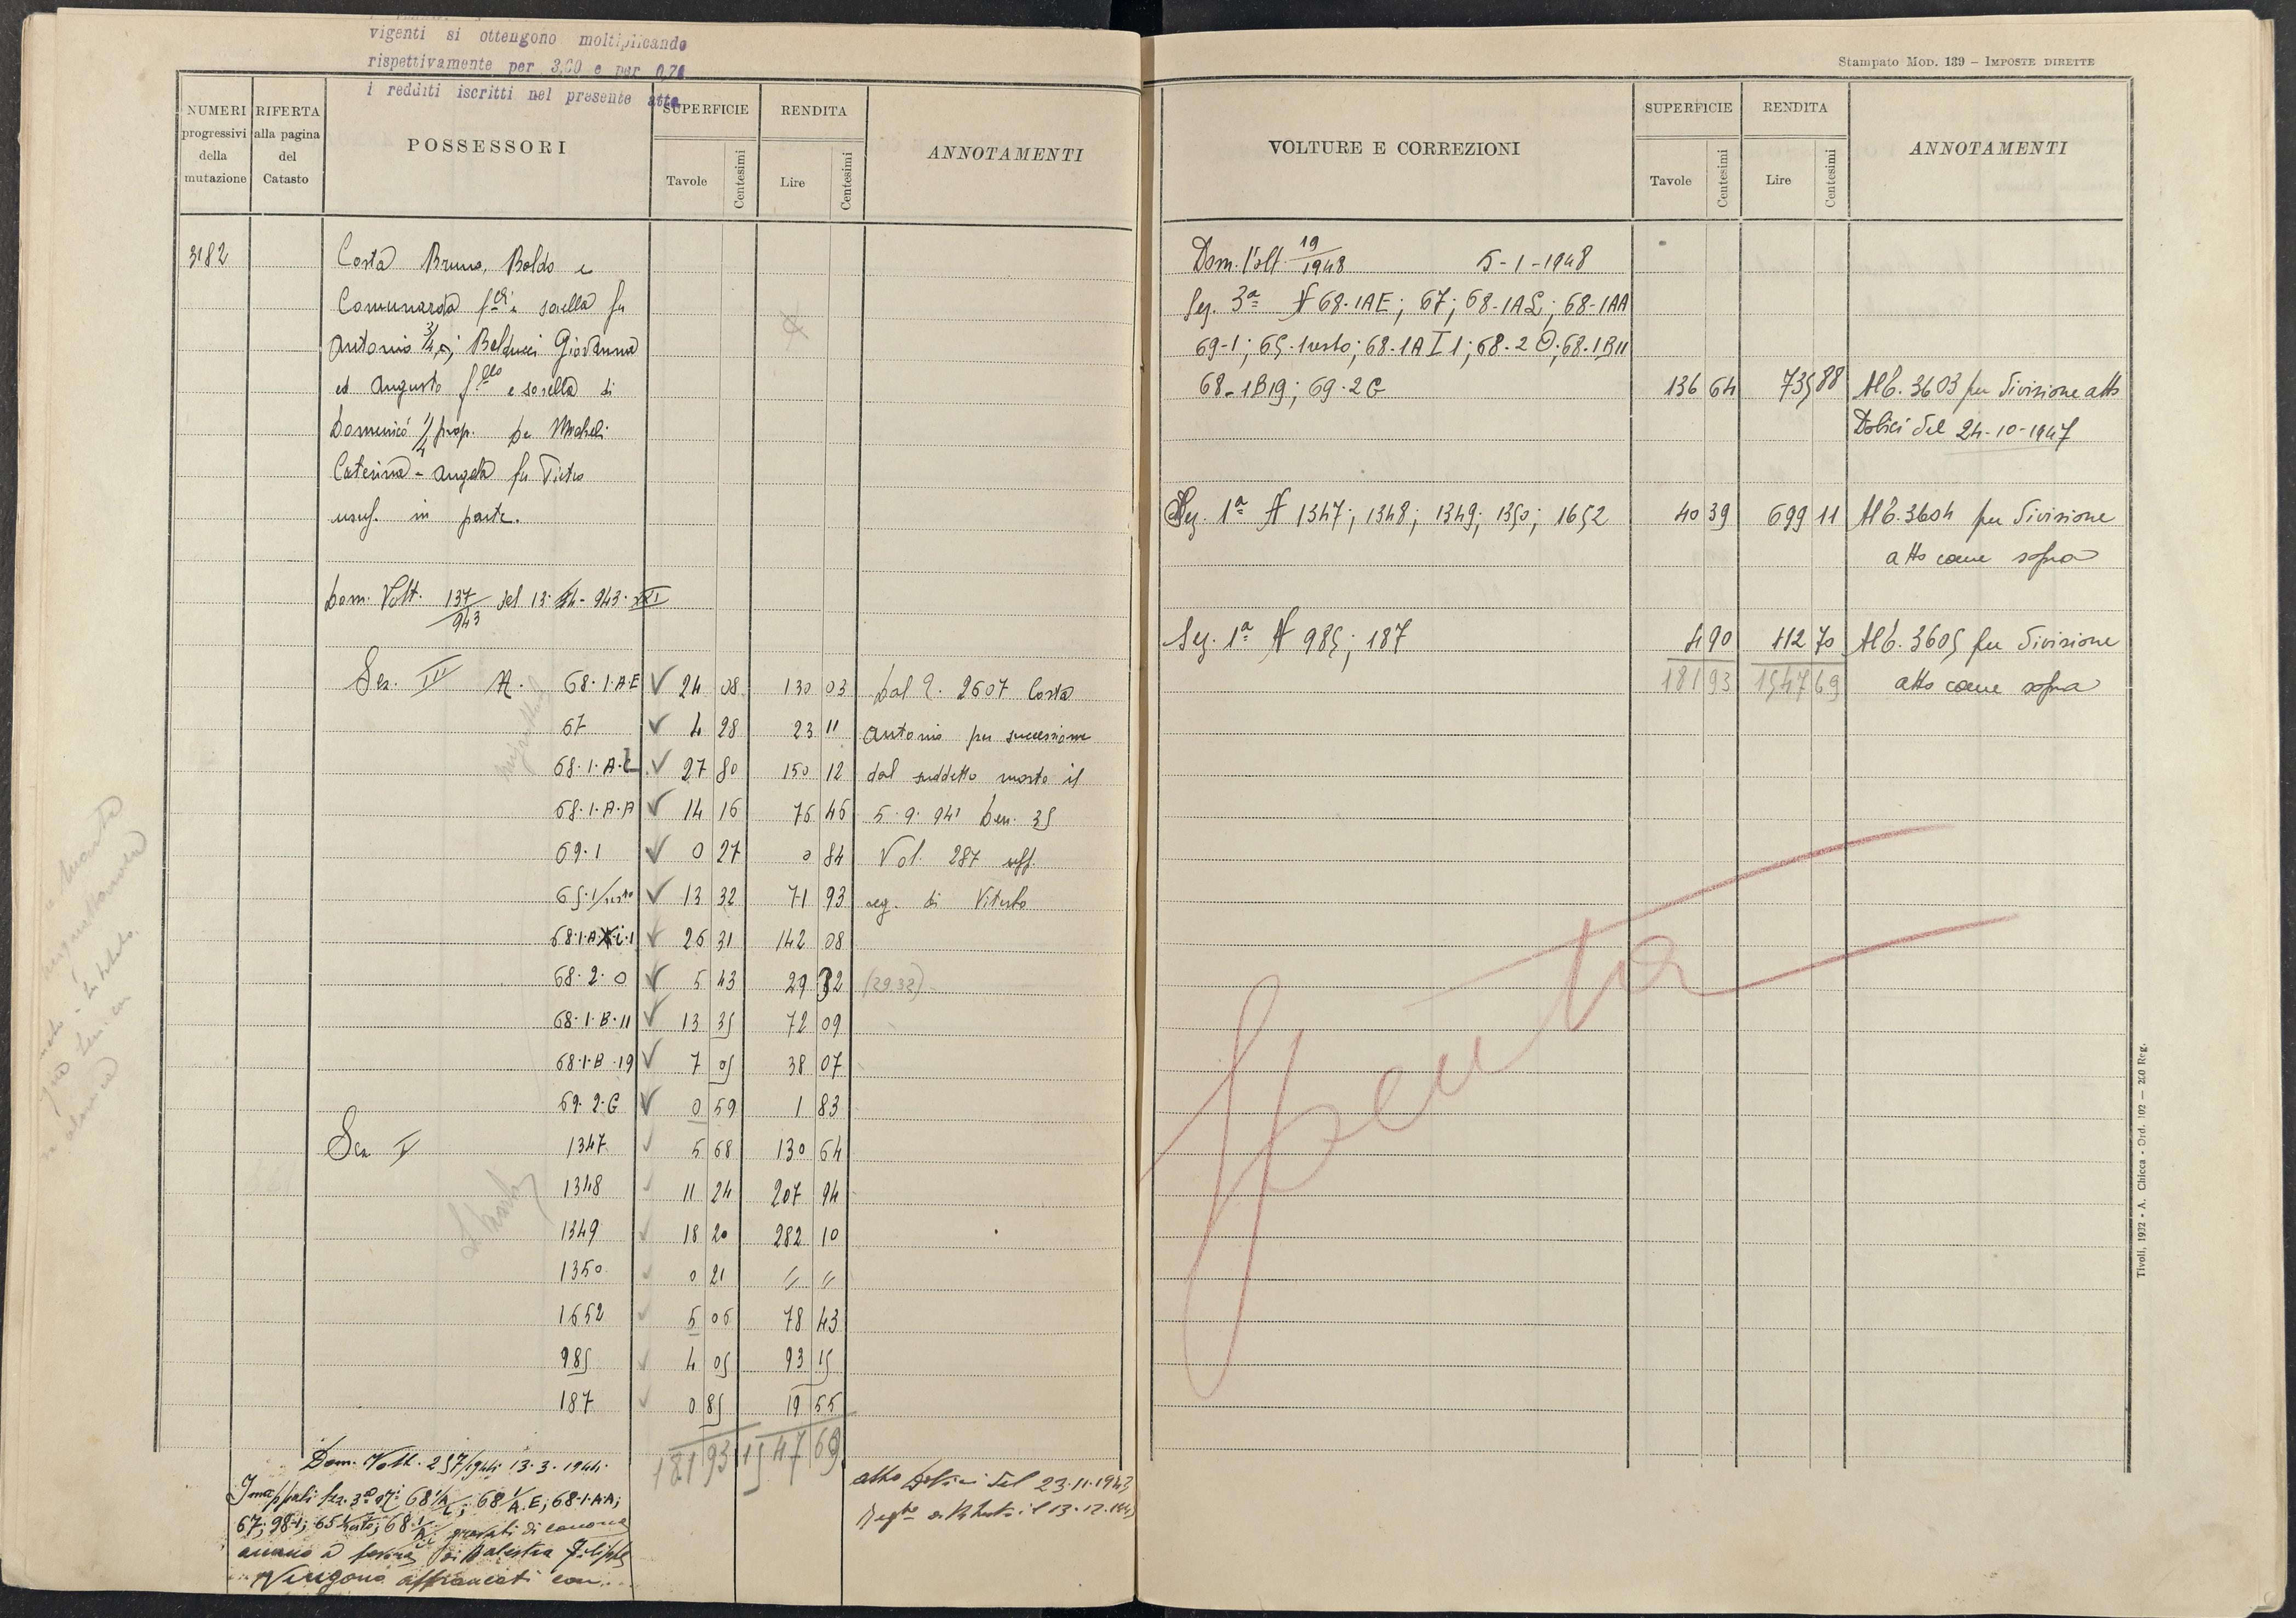 vigenti si ottengono moltiplicando
rispettivamente per 3,00 e per 0,70
i redditi iscritti nel presente atto
NUMERI progressivi della mutazione
RIFERTA alla pagina del Catasto
POSSESSORI
SUPERFICIE
Tavole
Centesimi
RENDITA
Lire
Centesimi
ANNOTAMENTI
3182
Costa Bruno, Baldo e
Comunarda f.lli e sorella fu
Antonio 3/4; Belducci Giovanna
ed Augusto f.llo e sorella di
Domenico 1/4 prop. De Micheli
Caterina-Angela fu Pietro
usuf. in parte.
Dom. Volt. 137/943 del 13-4-943-XXI
Sez. III N. 68-1-A-E 24 08 130 03 Dal N. 2607 Costa
67 4 28 23 11 Antonio per successione
68-1-A-L 27 80 150 12 dal suddetto morto il
68-1-A-A 14 16 76 46 5-9-941 Den. 35
69-1 0 27 0 84 Vol. 287 uff.
65-1/resto 13 32 71 93 reg. di Viterbo
68-1-A-i-1 26 31 142 08
68-2-O 5 43 29 32 (29 32)
68-1-B-11 13 35 72 09
68-1-B-19 7 05 38 07
69-2-G 0 59 1 83
Sez I 1347 5 68 130 64
1348 11 24 207 94
1349 18 20 282 10
1350 0 21 " "
1652 5 06 78 43
985 4 05 93 15
187 0 85 19 55
181 93 1547 69
Dom. Volt. 257/1944 13-3-1944
67; 98-1; 65 1/resto; 68 1/A gravati di canone
annuo a favore di Balestra Filippo
Vengono affrancati con...
atto Dolici del 23-11-1943
Regto a Viterbo il 13-12-1943
Stampato Mod. 139 – Imposte dirette
VOLTURE E CORREZIONI
SUPERFICIE
Tavole
Centesimi
RENDITA
Lire
Centesimi
ANNOTAMENTI
Dom. Volt. 19/1948 5-1-1948
Sez. 3a N 68-1AE; 67; 68-1AL; 68-1AA
69-1; 65-1 resto; 68-1A I 1; 68-2 O; 68-1B11
68-1B19; 69-2G 136 64 735 88 All 6. 3603 per divisione atto
Dolici del 24-10-1947
Sez. 1a N 1347; 1348; 1349; 1350; 1652 40 39 699 11 All 6. 3604 per divisione
atto come sopra
Sez. 1a N 985; 187 4 90 112 70 All 6. 3605 per divisione
181 93 1547 69 atto come sopra
Spenta
Tivoli, 1932 - A. Chicca - Ord. 102 — 200 Reg.